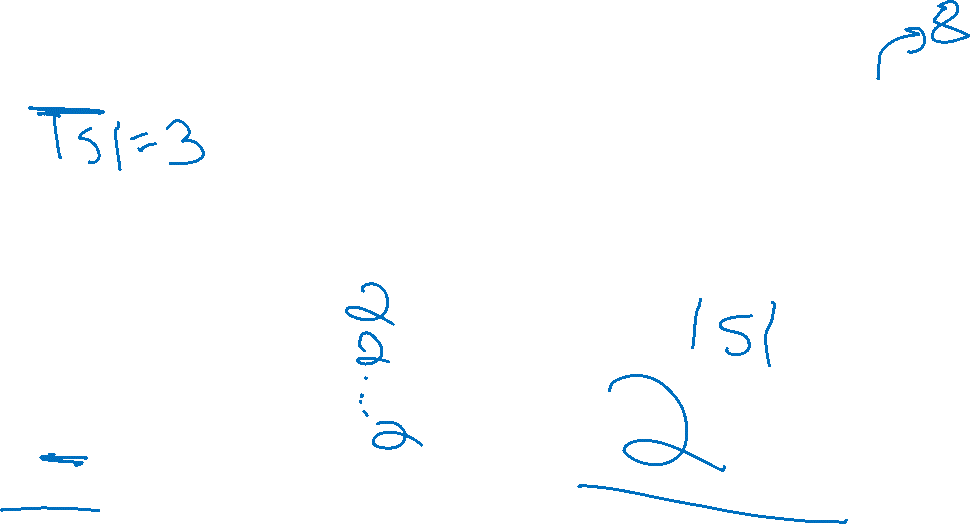 8
|S|=3
2
2
⋮
2
2^|S|